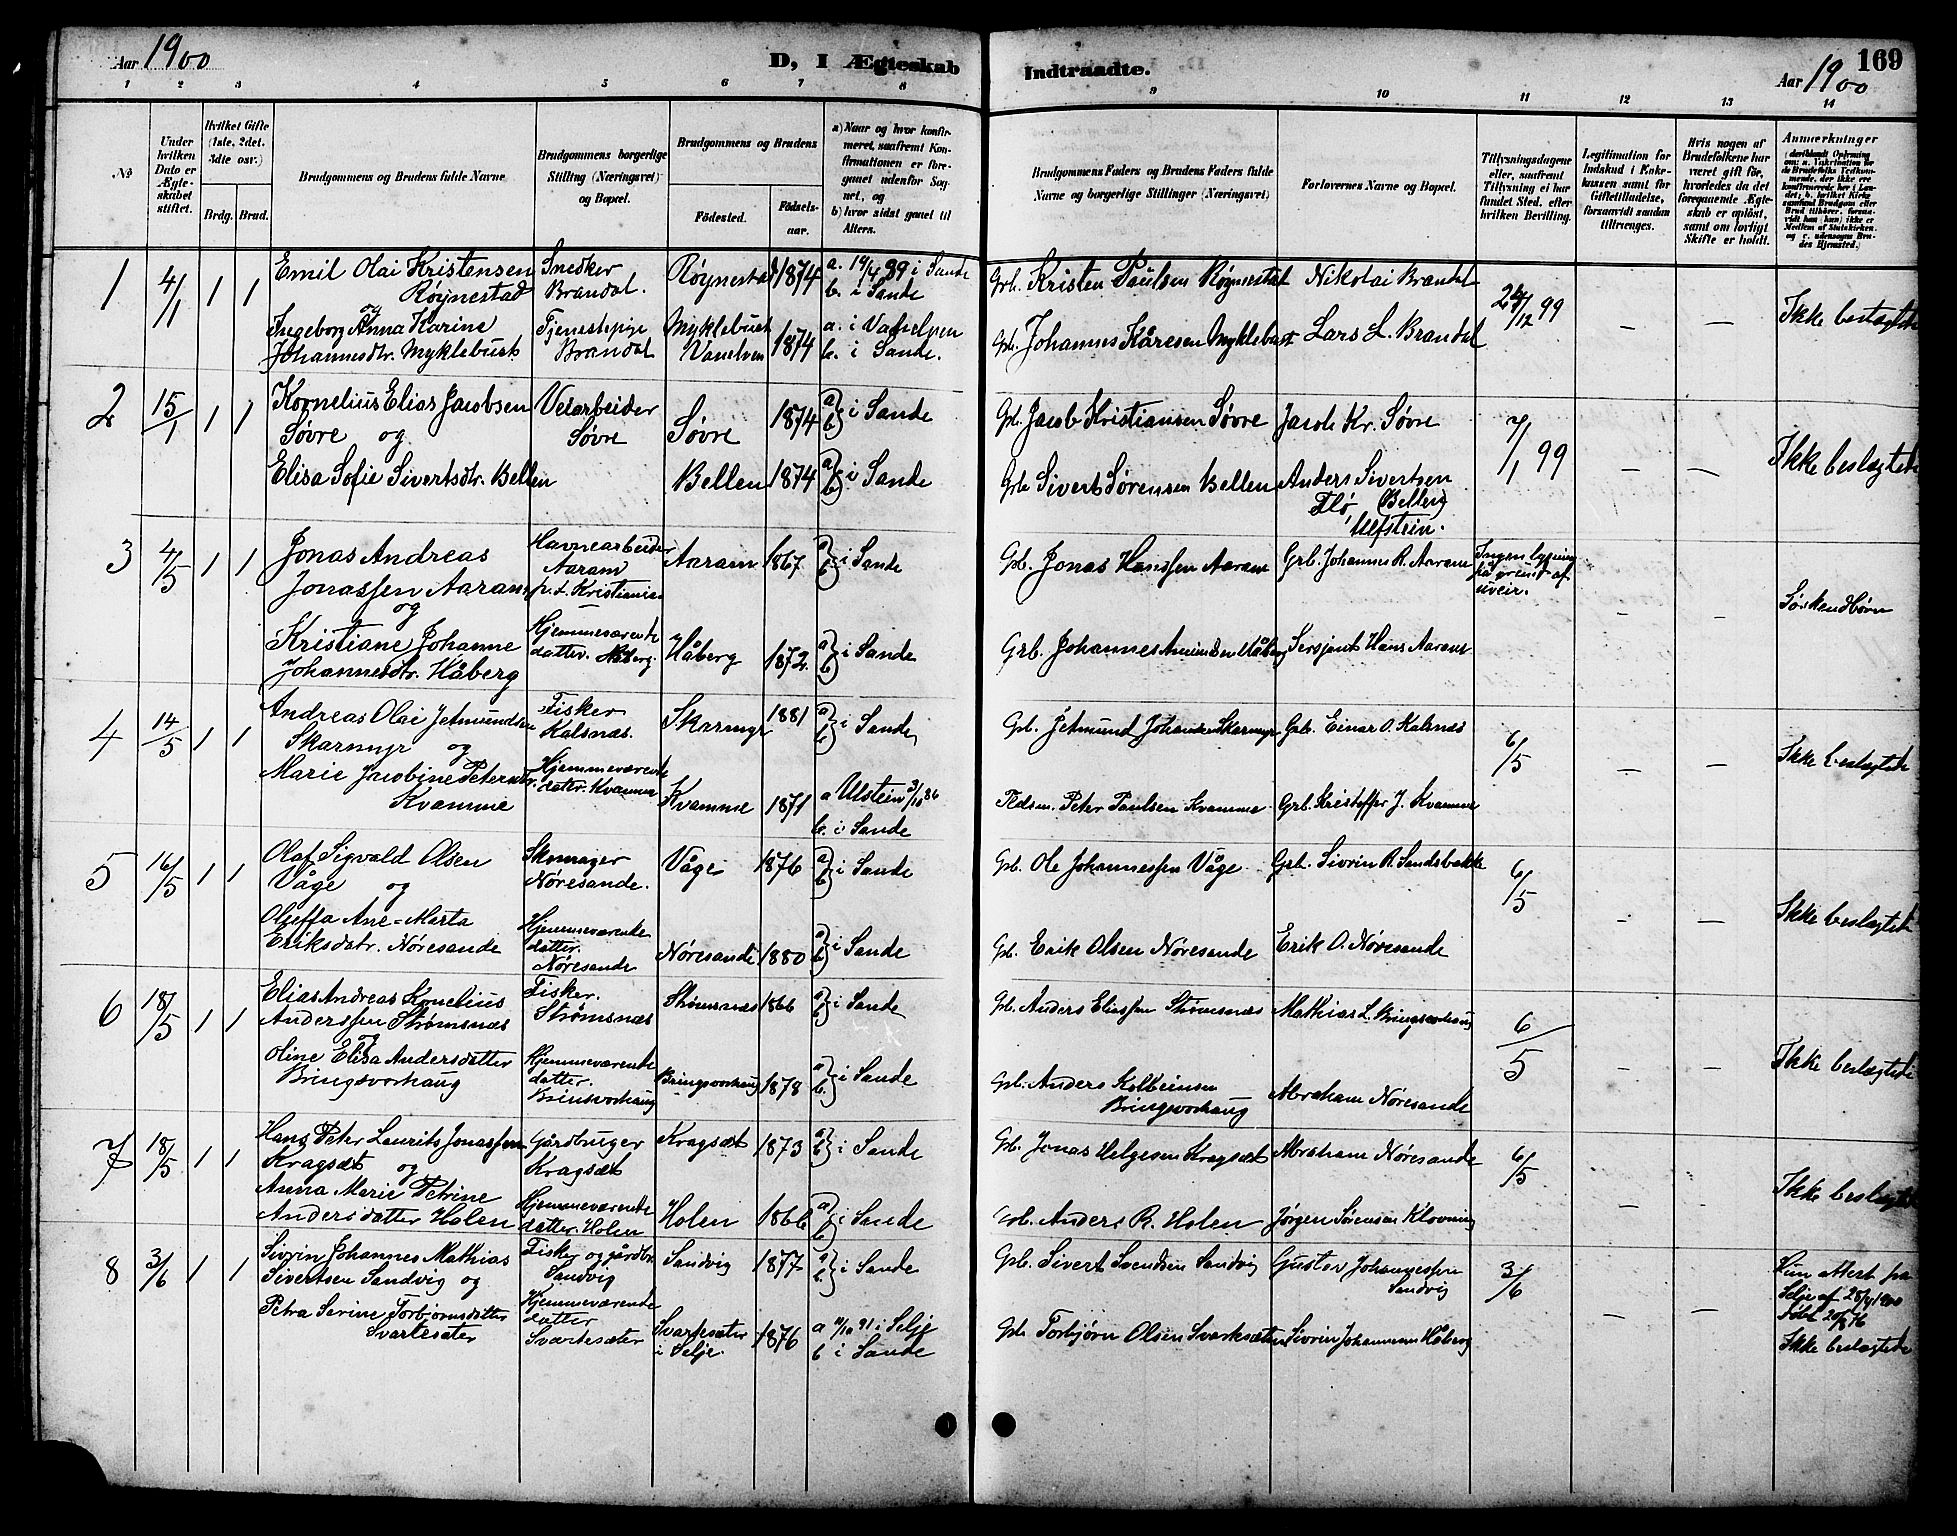 169
Aar 1900
D, I Ægteskab
Indtraadte.
Aar 1900
1 2 3 4 5 6 7 8
9 10 11 12 13 14
№
Under hvilken Dato er Ægteskabet stiftet.
Hvilket Gifte (1ste, 2det, 3dte osv.)
Brdg. Brud.
Brudgommens og Brudens fulde Navne
Brudgommens borgerlige Stilling (Næringsvei) og Bopæl.
Brudgommens og Brudens
Fødested.
Fødselsaar.
a) Naar og hvor konfirmeret, saafremt Konfirmationen er foregaaet udenfor Sognet, og
b) hvor sidst gaaet til Alters.
Brudgommens Faders og Brudens Faders fulde Navne og borgerlige Stillinger (Næringsvei)
Forlovernes Navne og Bopæl.
Tillysningsdagene eller, saafremt Tillysning ei har fundet Sted, efter hvilken Bevilling.
Legitimation for Indskud i Enkekassen samt for Giftetilladelse, forsaavidt saadan tiltrænges.
Hvis nogen af Brudefolkene har været gift før, hvorledes da det foregaaende Ægteskab er opløst, samt om lovligt Skifte er holdt.
Anmerkninger
1 4/1 1 1
Emil Olai Kristensen
Røynestad
og
Ingeborg Anna Karine
Johannesdtr. Myklebust
Snedker
Brandal.
Tjenestepige
Brandal
Røynestad 1874
Myklebust
Vanelven 1874
a. 14/4 89 i Sande
b. i Sande
a. i Vanelven
b. i Sande.
Grb. Kristen Paulsen Røynestad
Grb. Johannes Kåresen Myklebust
Nikolai Brandal
Lars L. Brandal
24/12 99
— —
Ikke beslægtede
2 15/1 1 1
Kornelius Elias Jacobsen
Søvre og
Elisa Sofie Sivertsdtr. Bellen
Veiarbeider
Søvre
Søvre 1874
Bellen 1874
a b } i Sande
a b } i Sande
Grb. Jacob Kristiansen Søvre
Grb. Sivert Sørensen Bellen
Jacob Kr. Søvre
Anders Sivertsen
Flø, (Bellen)
Ulfstein.
7/1 99
— —
Ikke beslægtede
3 4/5 1 1
Jonas Andreas
Jonassen Aaram
og
Kristiane Johanne
Johannesdtr. Håberg
Havnearbeider
Aaram
p.t. Kristiania
Hjemmeværende
datter. Håberg.
Aaram 1867
Håberg 1872.
a b } i Sande
a b } i Sande
Grb. Jonas Hanssen Aaram
Grb. Johannes Amundsen Håberg
Grb. Johannes R. Aaram
Sersjant Hans Aaram
Ingen lysning
på grund af
uveir.
— —
Søskendbørn
4 14/5 1 1
Andreas Olai Jetmundsen
Skarmyr og
Marie Jacobine Petersdtr.
Kvamme
Fisker
Kalsnæs.
Hjemmeværende
datter. Kvamme
Skarmyr 1881
Kvamme 1871
a b } i Sande
a Ulstein 3/10 86
b. i Sande
Grb. Jetmund Johansen Skarmyr
Fledsm. Peter Paulsen Kvamme
Grb. Einar O. Kalsnæs
Grb. Kristoffer J. Kvamme
6/5
— —
Ikke beslægtede
5 16/5 1 1
Olaf Sigvald Olsen
Våge og
Oluffa Ane-Marta
Eriksdatr. Nøresande
Skomager
Nøresande.
Hjemmeværende
datter.
Nøresande
Våge 1876
Nøresande 1880
a b } i Sande
a b } i Sande
Grb. Ole Johannessen Våge
Grb. Erik Olsen Nøresande
Grb. Sivrin R. Sandsbakk
Erik O. Nøresande
6/5
— —
Ikke beslægtede
6 18/5 1 1
Elias Andreas Kornelius
Anderssen Strømsnæs
og
Oline Elisa Andersdatter
Bringsvorhaug
Fisker.
Strømsnæs
Hjemmeværende
datter.
Bringsvorhaug
Strømsnæs 1866
Bringsvorhaug 1878
a b } i Sande
a b. } i Sande
Grb. Anders Eliassen Strømsnæs
Grb. Anders Kolbeinsen
Bringsvorhaug
Mathias L. Bringsvorhaug
Abraham Nøresande
6/5
— —
Ikke beslægtede
7 18/5 1 1
Hans Peter Laurits Jonassen
Kragsæt og
Anna Marie Petrine
Andersdatter Holen
Gårdbruger
Kragsæt
Hjemmeværende
datter. Holen
Kragsæt 1873
Holen 1866
a b } i Sande
a b } i Sande
Grb. Jonas Helgesen Kragsæt
Grb. Anders R. Holen
Abraham Nøresande
Jørgen Sørensen Klovning
6/5
— —
Ikke beslægtede
8 3/6 1 1
Sivrin Johannes Mathias
Sivertsen Sandvig og
Petra Serine Torbjørnsdatter
Svartesæter
Fisker og gårdbr.
Sandvig
Hjemmeværende
datter
Svartesæter
Sandvig 1877
Svartesæter
i Selje. 1876
a b } i Sande
a 11/10 91 i Selje
b i Sande
Grb. Sivert Svendsen Sandvig
Grb. Torbjørn Olsen Svartesæter
Gustav Johannessen
Sandvig
Sivrin Johannesen Håberg
3/6
— —
Hun attest fra
Selje af 28/4 1900
Født 20/8 76
Ikke beslægtede